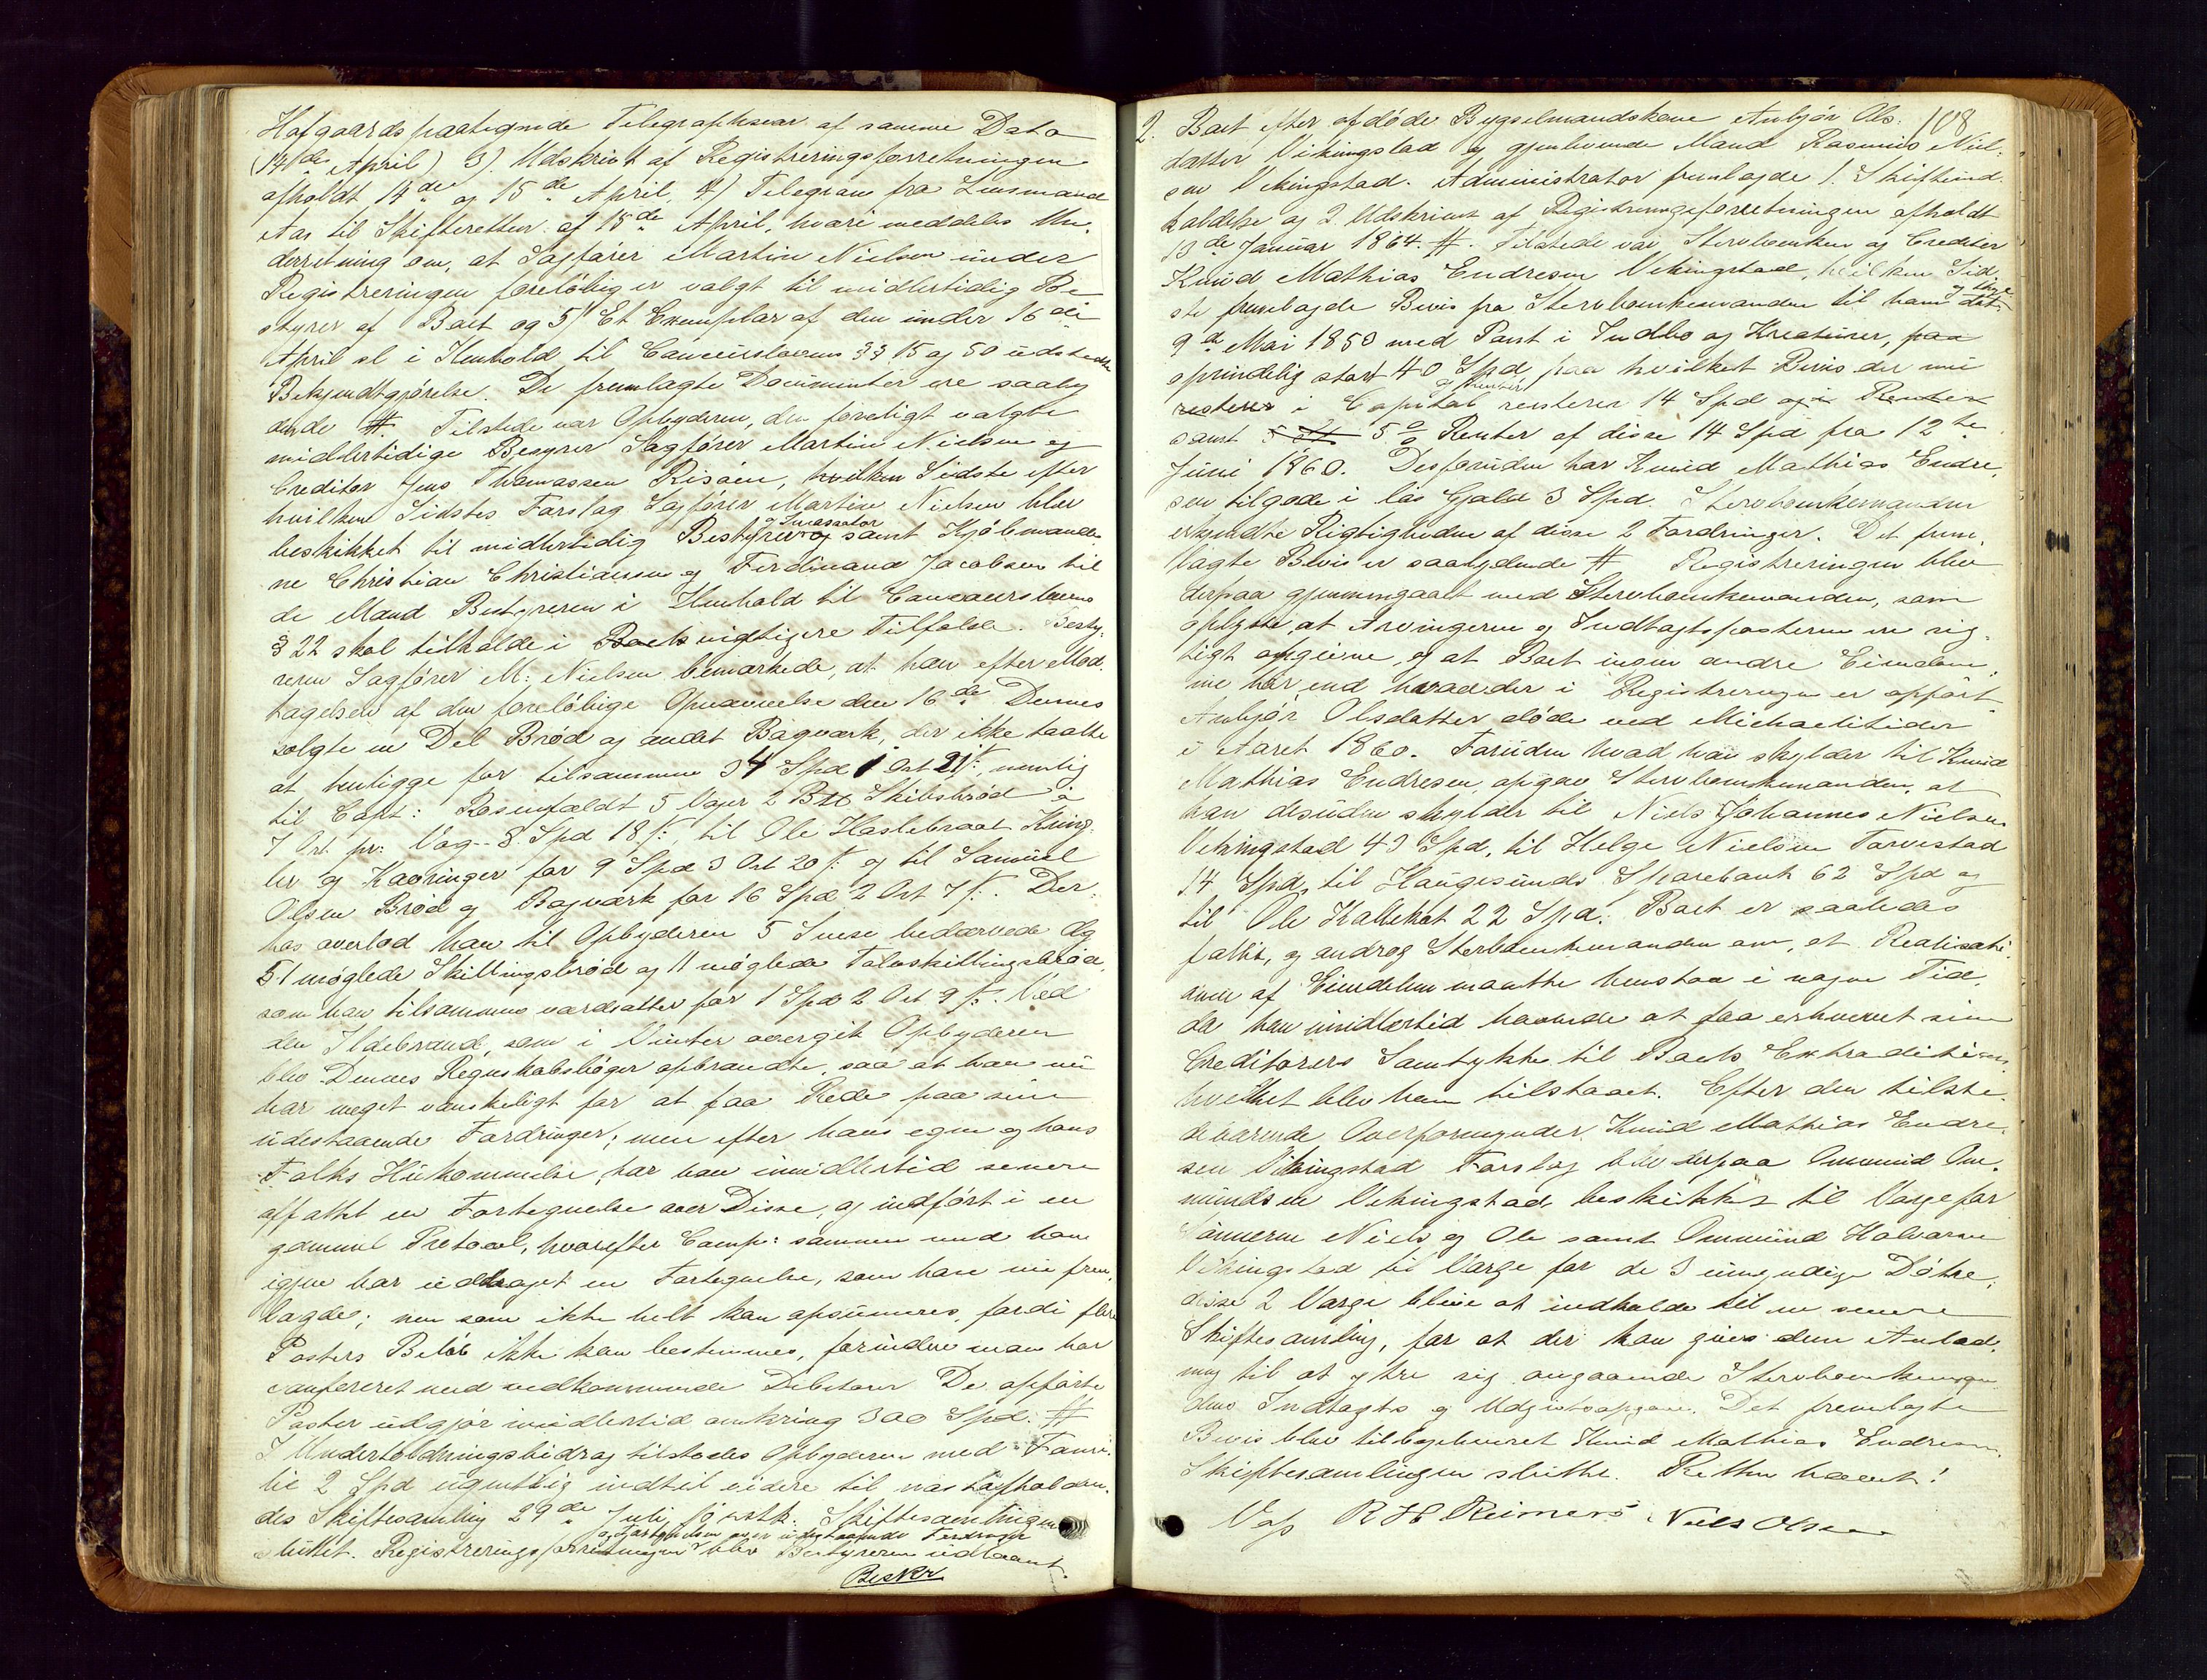 Hofgaards paategnede Telegraphsvar af samme Dato
(14de April) 3). Udskrivt af Registreringsforretningen
afholdt 14de og 15de April. 4) Telegram fra Lensmand
Aas til Skifteretten af 15de April, hvori meddeles Un-
derretning om, at Sagfører Martin Nielsen under
Registreringen foreløbig er valgt til midlertidig Be
styrer af Boet og 5) Et Exemplar af den under 16de
April sl i Henhold til Concurslovens §§ 15 og 50 udstedte
Bekjendtgjørelse. De fremlagte Documenter ere saaly
dende #. Tilstede var Opbyderen, den foreligt valgte
midlertidige Besyrer Sagfører Martin Nielsen og
Creditor Jens Thomassen Risøen, hvilken Sidste efter
hvilken Sidstes Forslag Sagfører Martin Nielsen blev
beskikket til midlertidig Bestyrer og Incassator samt Kjøbmænde-
ne Christian Christiansen og Ferdinand Jacobsen til
de Mænd Bestyreren i Henhold til Concourslovens
§ 22 skal tilholde i Boets vigtigere Tilfælde. Besty-
reren Sagfører M: Nielsen bemærkede, at han efter Mod-
tagelsen af den foreløbige Opnævnelse den 16de Dennes
solgte en Del Brød og andet Bagværk, der ikke taalte
at henligge for tilsammen 34 Spd 1 Ort 21 s:, nemlig
til Capt: Rosenfældt 5 Voger 2 B Skibsbrød à
7 Ort pr: Vog - 8 Spd 18 s:, til Ole Haslebraat Kring-
ler og Kavringer for 9 Spd 3 Ort 20 s: og til Samuel
Olsen Brød og Bagværk for 16 Spd 2 Ort 7 s:. Der-
hos overlod han til Opbyderen 5 Snese bedærvede Æg
51 møglede Skillingsbrød og 11 møglede Toloskillingsbrød,
som han tilsammen værdsatter for 1 Spd 2 Ort 9 s:. Ved
den Ildebrand, som i Vinter overgik Opbyderen
blev Dennes Regnskabsbøger opbrændte, saa at han nu
har meget vanskeligt for at faa Rede paa sine
udestaaende Fordringer; men efter hans egen og hans
Folks Hukommelse, har han imidlertid senere
affattet en Fortegnelse over Disse, og indført i en
gammel Protocol, hvorefter Comp: sammen med ham
igjen har uddraget en Fortegnelse, som han nu frem-
lagde; men som ikke helt kan opsumeres, fordi flere
Posters Beløb ikke kan bestemmes, forinden man har
confereret med vedkommende Debitorer De opførte
Poster udgjør imidlertid omkring 300 Spd: #
I Underholdningsbidrag tilstodes Opbyderen med Fami-
lie 2 Spd ugentlig indtil videre til næstafholden-
des Skiftesamling 29de Juli førstk: Skiftesamlingen
sluttet. Registreringsforretningen og Fortegnelsen over udestaaende Fordringer blev Bestyreren udlaant.
Beskr
108
2. Boet efter afdøde Bygselmandskone Anbjør Ols-
datter Vikingstad og gjenlevende Mand Rasmus Niel-
sen Vikingstad. Administrator fremlagde 1. Skifteind
kaldelse og 2. Udskrivt af Registreringsforretningen afholdt
13de Januar 1864. #. Tilstede var Stervboenken og Creditor
Knud Mathias Endresen Vikingstad, hvilken Sid-
ste fremlagde Bevis fra Stervboenkemanden til ham
9de Mai 1850 med Pant i Indbo og Kreaturer, paa
oprindelig stort 40 Spd paa hvilket Bevis der nu
resterer i Capital og Renter resterer 14 Spd og i Renter
samt 5 % Renter af disse 14 Spd fra 12te
Juni 1860. Desforuden har Knud Mathias Endre-
sen tilgode i løs Gjæld 3 Spd. Stervboenkemanden
erkjendte Rigtigheden af disse 2 Fordringer. Det frem-
lagte Bevis er saalydende # Registreringen blev
derpaa gjennemgaaet med Stervboenkemanden, som
oplyste, at Arvingerne og Indtægtsposterne ere rig-
tigt opgivne, og at Boet ingen andre Eiendom-
me har, end hvad der i Registreringen er opført
Anbjør Olsdatter døde ved Michaelitider
i Aaret 1860. Foruden hvad han skylder til Knud
Mathias Endresen, opgav Stervboenkemanden, at
han desuden skylder til Niels Johannes Nielsen
Vikingstad 43 Spd, til Helge Nielsen Torvestad
14 Spd, til Haugesunds Sparebank 62 Spd og
til Ole Kallekot 22 Spd. Boet er saaledes
fallit, og androg Sterboenkemanden om, at Realisati-
onen af Eiendelene maatte henstaa i nogen Tid,
da han imidlertid haabede at faa erhvervet sine
Creditorers Samtykke til Boets Extradition,
hvilket blev ham tilstaaet. Efter den tilste-
deværende Overformynder Knud Mathias Endre-
sen Vikingstad Forslag blev derpaa Ommund Om-
mundsen Vikingstad beskikket til Værge for
Sønnerne Niels og Ole samt Ommund Halvorsen
Vikingstad til Værge for de 3 umyndige Døtre,
disse 2 Værge blive at indkalde til en senere
Skiftesamling, for at der kan gives dem Anled-
ning til at ytre sig angaaende Stervboenkeman-
dens Indtægts og Udgiftsopgave. Det fremlagte
Bevis blev tilbageleveret Knud Mathias Endresen.
Skiftesamlingen sluttet. Retten hævet!
R H Reimers Niels Olsen